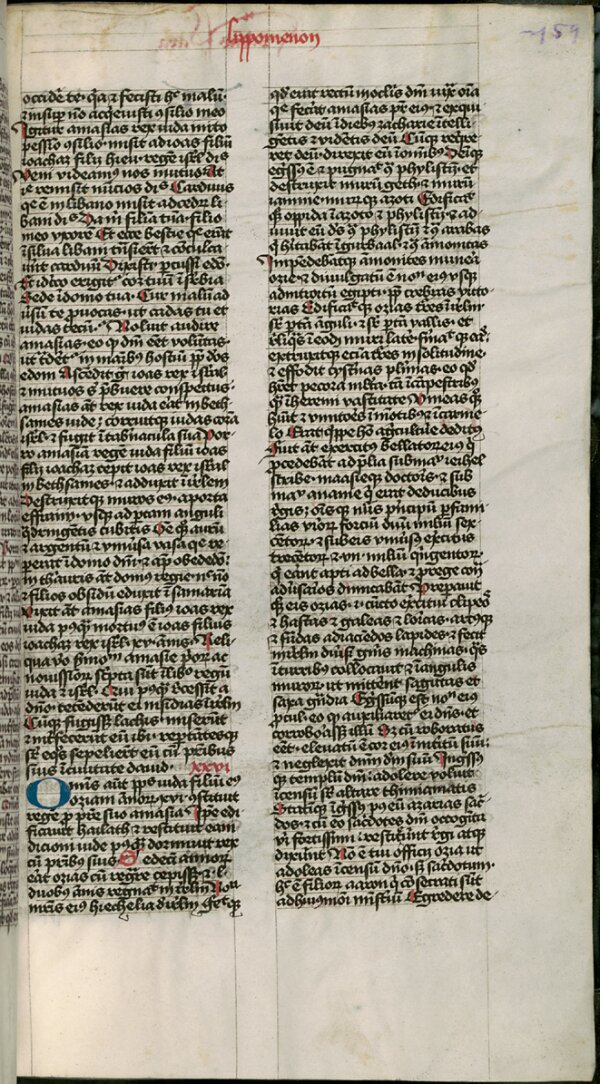 lippomenon
159
occidere te · q̄a & fecisti hͦ malū ·
& insuꝑ nō acq̇evisti 9silio meo
Igitur amasias rex iuda inito
pessīo 9silio · misit ad ioas filiū
ioachaz filii hieu · regē isrl̄ · dis
Veni videamus nos mutuo · At
ille remisit nūcios · dis Carduus
qe ē in libano misit ad cedrū li
bani dis Da mͥ filiā tuā filio
meo uxorē Et ecce bestie qe erāt
ī silva libani trāsierūt & 9culca
verūt carduū Dixisti ꝑcussi edō ·
Et idcirco erigit cor tuū ī sꝑbiā
Sede ī domo tua · Cur malū ad
v̄sū te ꝓvocas · ut cadas tu et
iudas tecū · Noluit audire
amasias · eo q̄ dn̄i eēt volūtas ·
ut tͣderet in manibus hostiū ꝓpt̄ deos
edom Ascendit gͥ ioas rex isrl̄
& mutuos sͥ p̄buere 9spectus ·
amasias āt rex iuda erat in beth
sames iude · corruitque iudas corā
isrl̄ · & fugit ī tabnacula sua Por
ro amasiā regē iuda filiū ioas
filii ioachaz cepit ioas rex isrl̄
in bethsames · & adduxit ī irlem
Destruxitque muros eius · a porta
effraim · usque ad portam anguli
qͣdringetis cubitis Oē qͦ aurū
& argentū & univsa vasa qe re
perat ī domo dn̄i · & apud obededō ·
in thauris āt domus regie · nͨ nō
& filios obsidū eduxit ī samaria
Vixit āt amasias filius ioas rex
iuda · pͦ qͣ mortuus ē ioas filius
ioachaz rex isrl̄ · xv · annis · Reli
qua vͦ s̄monū amasie priorū ac
novissiorū scͥpta sūt ī libro regū
iuda & isrl̄ · Qui pͦ qͣ recessit a
dn̄o · tetenderūt ei insidias ī irlem
Cūque fugisset lachis · miserūt
& int̄fecerūt eū ibi · reportātesque
sͣ eqͦs sepelierūt eū cū patribus
suis ī civitate david · xxvi
Omnis aūt pp̄s iuda filiū eius
oziam annorū xvi · 9stituit
regē pro patre suo amasia Ipse edi
ficavit hailath & restituit eam
dicioni iude · pͦ qͣ dormivit rex
cū patribus suis Sedeci annorū
erat ozias cū regnare cepisset & l ·
duobus annis regnavit in irlem Nom̄
matris eius hiechelia d irlem Fecitque
qd̄ erat rectū in oculis dn̄i · iuxͣ oīa
qe fecerat amasias pat̄ eius · & exqui
sivit deū ī diebus zacharie ītelli
getis & videtis deū Cūque reqͥret
deū · direxit eū ī omnibus Deique
egressus ē & pugnavit 9tͣ phylistiī · et
destruxit murū geth · & murū
iamnie · murūque azoti Edificavit
que oppida ī azoto & phylistiī · & ad
iuvit eū ds̄ 9tͣ phylistiī · & 9tͣ arabas
qͥ habitabāt ī gurbaal · & 9tͣ amonitas
Impedebatque amonites munera
ozie · & divulgatū ē nom̄ eius usque
ad introitū egipti · ꝓpt̄ crebras victo
rias Edificavitque ozias turres ī irlem
sͣ portā anguli · & sͣ portā vallis · et
reliqͣs ī eodē muri latere firmavitque eas
extruxitque eciā turres in solitudine ·
& effodit cysternas plurimas · eo qd̄
haberet pecora multa tā ī capestribus
qͣ ī heremi vastitate Vineas que
habuit & vinitores ī motibus & ī carme
lo Erat qippe hō agriculture deditus
Fuit āt exercitus bellatorū eius qͥ
ꝓcedebat ad p̄lia sub manu ieihel
scribe · maasieque doctoris · & sub
manu ananie qͥ erat de ducibus
regis · oīsque nūs principū per fami
lias virorū forciū duū miliū sex
cetorū · & sub eis univsus exercitus
trecetorū & vii · miliū qͥngentorū
qͥ erant apti ad bella · & ꝓ rege con
adversarios dimicabāt Preparavit
que eis ozias · i · cūcto exercitui clipeos
& hastas & galeas & loricas · arcusque
& fūdas ad iaciedos lapides · & fecit
in irlem diversi gen̄is machinas · qͣs
ī turribus collocavit & ī angulis
murorū ut mitterent sagittas et
saxa grandia Egressūque est nom̄ eius
ꝓcul · eo qͦ auxiliaret ei dn̄s · et
corroborasset illū Sed cū roboratus
eēt · elevatū ē cor eius in interitū suū ·
& neglexit dn̄m dm̄ suū Ingressus
que templū dn̄i · adolere voluit
īcensū sͣ altare thimiamatis
Statimque īgressus pͦ eū azarias sac̄
dos · & cū eo sacerdotes dn̄i octoginta
viri fortissimi · restiterūt regi atque
dixerūt Nō ē tui officii ozia ut
adoleas īcensū dn̄o · sͫ sacerdotum ·
hͦ ē filiorū aaron qͥ 9secrati sūt
ad huiusmoi ministeriū Egredere de